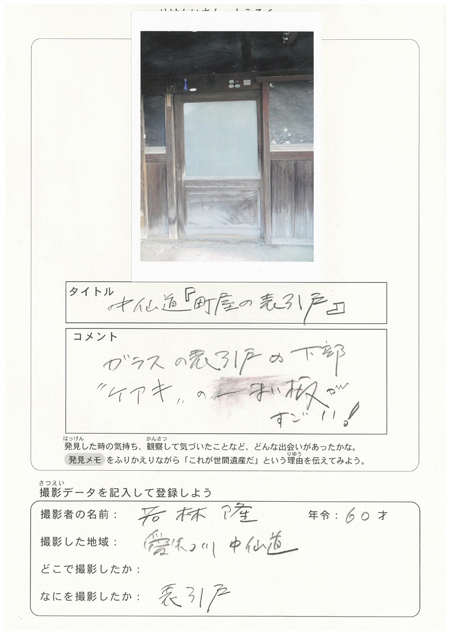 タイトル
中仙道『町屋の表引戸』
コメント
ガラスの表引戸の下部
"ケアキ"の一まい板が
すごい!
はっけん かんさつ
発見した時の気持ち、観察して気づいたことなど、どんな出会いがあったかな。
りゆう
発見メモ をふりかえりながら「これが世間遺産だ」という理由を伝えてみよう。
さつえい
撮影データを記入して登録しよう
撮影者の名前: 若林 隆 年令: 60才
撮影した地域: 愛知川 中仙道
どこで撮影したか:
なにを撮影したか: 表引戸